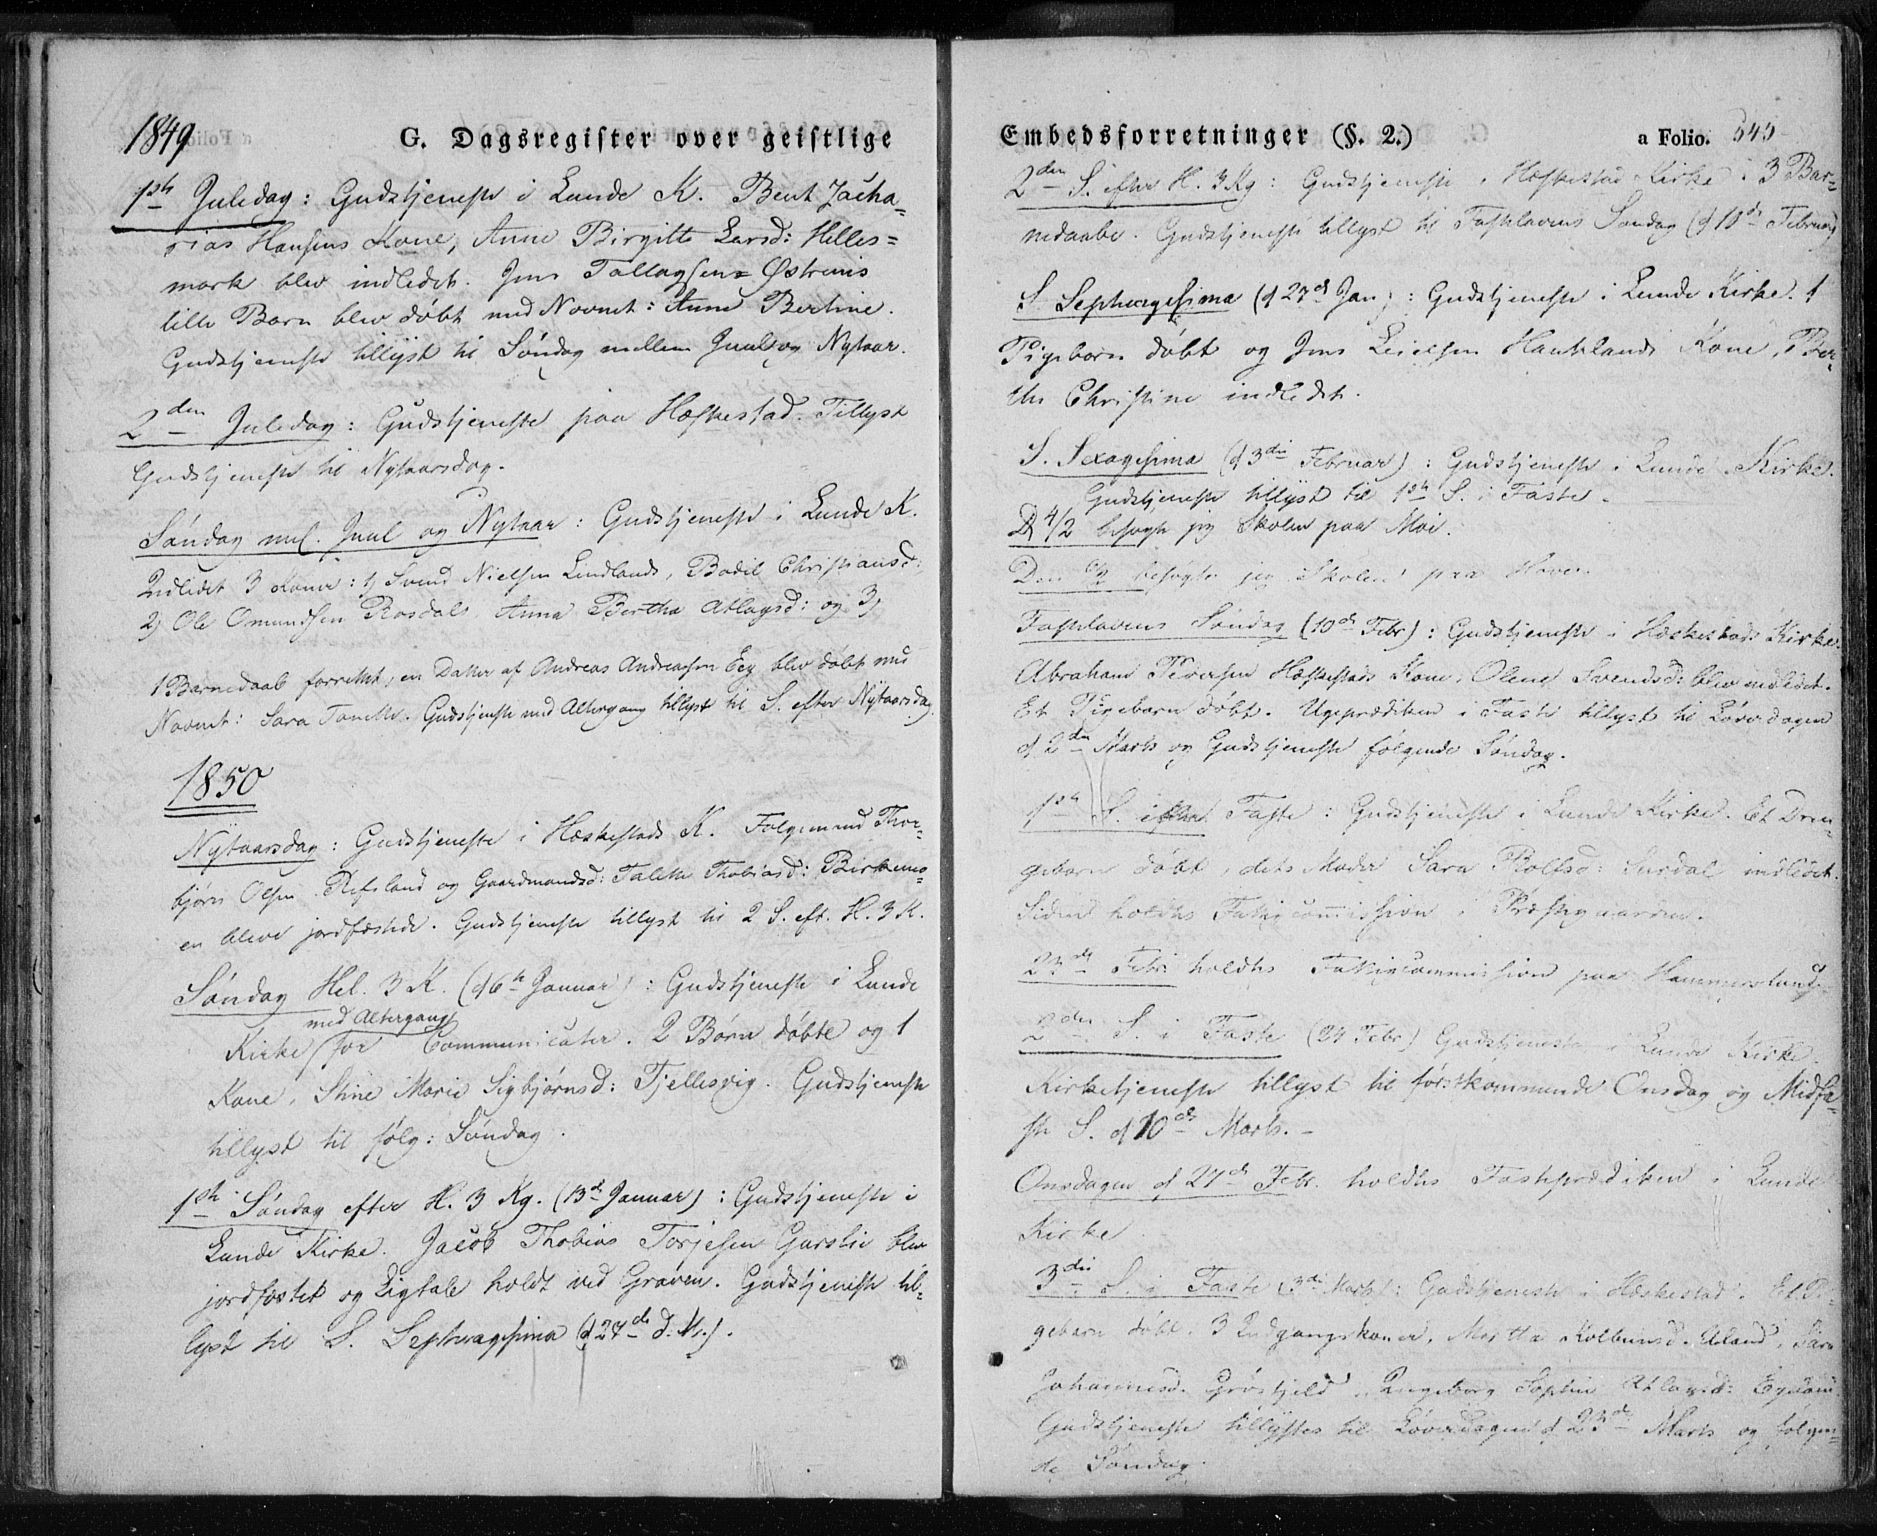 1849
G. Dagsregister over geistlige
1ste Juledag: Gudstjeneste i Lunde K. Bent Zacha=
rias Hansens Kone, Anne Birgitte Larsd: Helles=
mark blev indledet. Jens Tallagsen= Østreims
lille Barn blev døbt med Navnet: Anne Bertine.
Gudstjeneste tillyst til Søndag mellem Juul og Nytaar.
2den Juledag: Gudstjeneste paa Hæskestad. Tillyst
Gudstjeneste til Nytaarsdag.
Søndag mel. Juul og Nytaar: Gudstjeneste i Lunde K.
Indledet 3 Koner: 1) Svend Nielsen Lindlands, Bodil Christiansd:
2) Ole Omundsen Rosdals, Anna Bertha Atlagsd: og 3)
1 Barnedaab forrettet, en Datter af Andreas Andreassen Eeg blev døbt med
Navnet: Sara Tonette. Gudstjeneste med Altergang tillyst til S. efter Nytaarsdag.
1850
Nytaarsdag: Gudstjeneste i Hæskestads K. Folgemand Thor=
bjørn Olsen Refsland og Gaardmandsd: Talette Thobiasd: Birkemo=
en bleve jordfæstede. Gudstjeneste tillyst til 2 S. eft. H. 3 K.
Søndag Hel. 3 K. (d 6te Januar): Gudstjeneste i Lunde
med Altergang
Kirke for Communicater. 2 Børn døbte og 1
Kone, Stine Marie Sigbjørnsd: Tjellesvig. Gudstjeneste
tillyst til følg: Søndag.
1ste Søndag efter H. 3 Kg. (13de Januar): Gudstjeneste i
Lunde Kirke. Jacob Thobias Torjesen Garslie blev
jordfæstet og Ligtale holdt ved Graven. Gudstjeneste til=
lyst til S. Septuagesima (d 27de d. M.).
Embedsforretninger (§. 2.)
a Folio. 545
2den S. efter H. 3 Kg: Gudstjeneste i Hæskestad Kirke. 3 Bar=
nedaabe. Gudstjeneste tillyst til Fastelavens Søndag (d 10de Februar)
S. Septuagesima (d 27de Jan): Gudstjeneste i Lunde Kirke. 1
Pigebarn døbt og Jens Hauklands Kone, Ber=
the Christine indledet.
S. Sexagesima (d 3die Februar): Gudstjeneste i Lunde Kirke.
Gudstjeneste tillyst til 1ste S. i Faste.
D 4/2 besøgte jeg Skolen paa Moi.
Den besøgte jeg Skolen paa
Fastelavens Søndag (10de Febr): Gudstjeneste i Hæskestads Kirke.
Abraham Pedersen Hæskestads Kone, Olene Svendsd: blev indledet.
Et Pigebarn døbt. Ugeprædiken i Faste tillyst til Løverdagen
d 2den Marts og Gudstjeneste følgende Søndag.
1ste S. i Faste: Gudstjeneste i Lunde Kirke. Et Dren=
gebarn døbt, dets Moder Sara Roltsd: Surdal indledet.
Siden holdtes Fattigcommission i Præstegaarden.
23de Febr holdtes Fattigcommission paa
2den S. i Faste (24 Febr) Gudstjeneste i Lunde Kirke.
Kirketjeneste tillyst til førstkommende Onsdag og Midfa=
ste S. d 10de Marts.
Onsdagen d 27de Febr. holdtes Fasteprædiken i Lunde
Kirke
3die S. i Faste (3die Marts): Gudstjeneste i Hæskestad. Et Pi=
gebarn døbt. 3 Indgangskoner, Martha Aaland, Sara
Johannesd. Grøsfjeld, Ingeborg Sophie Atlagsd:
Gudstjeneste tillystes til Løverdagen d 23de Marts og følgen=
de Søndag.